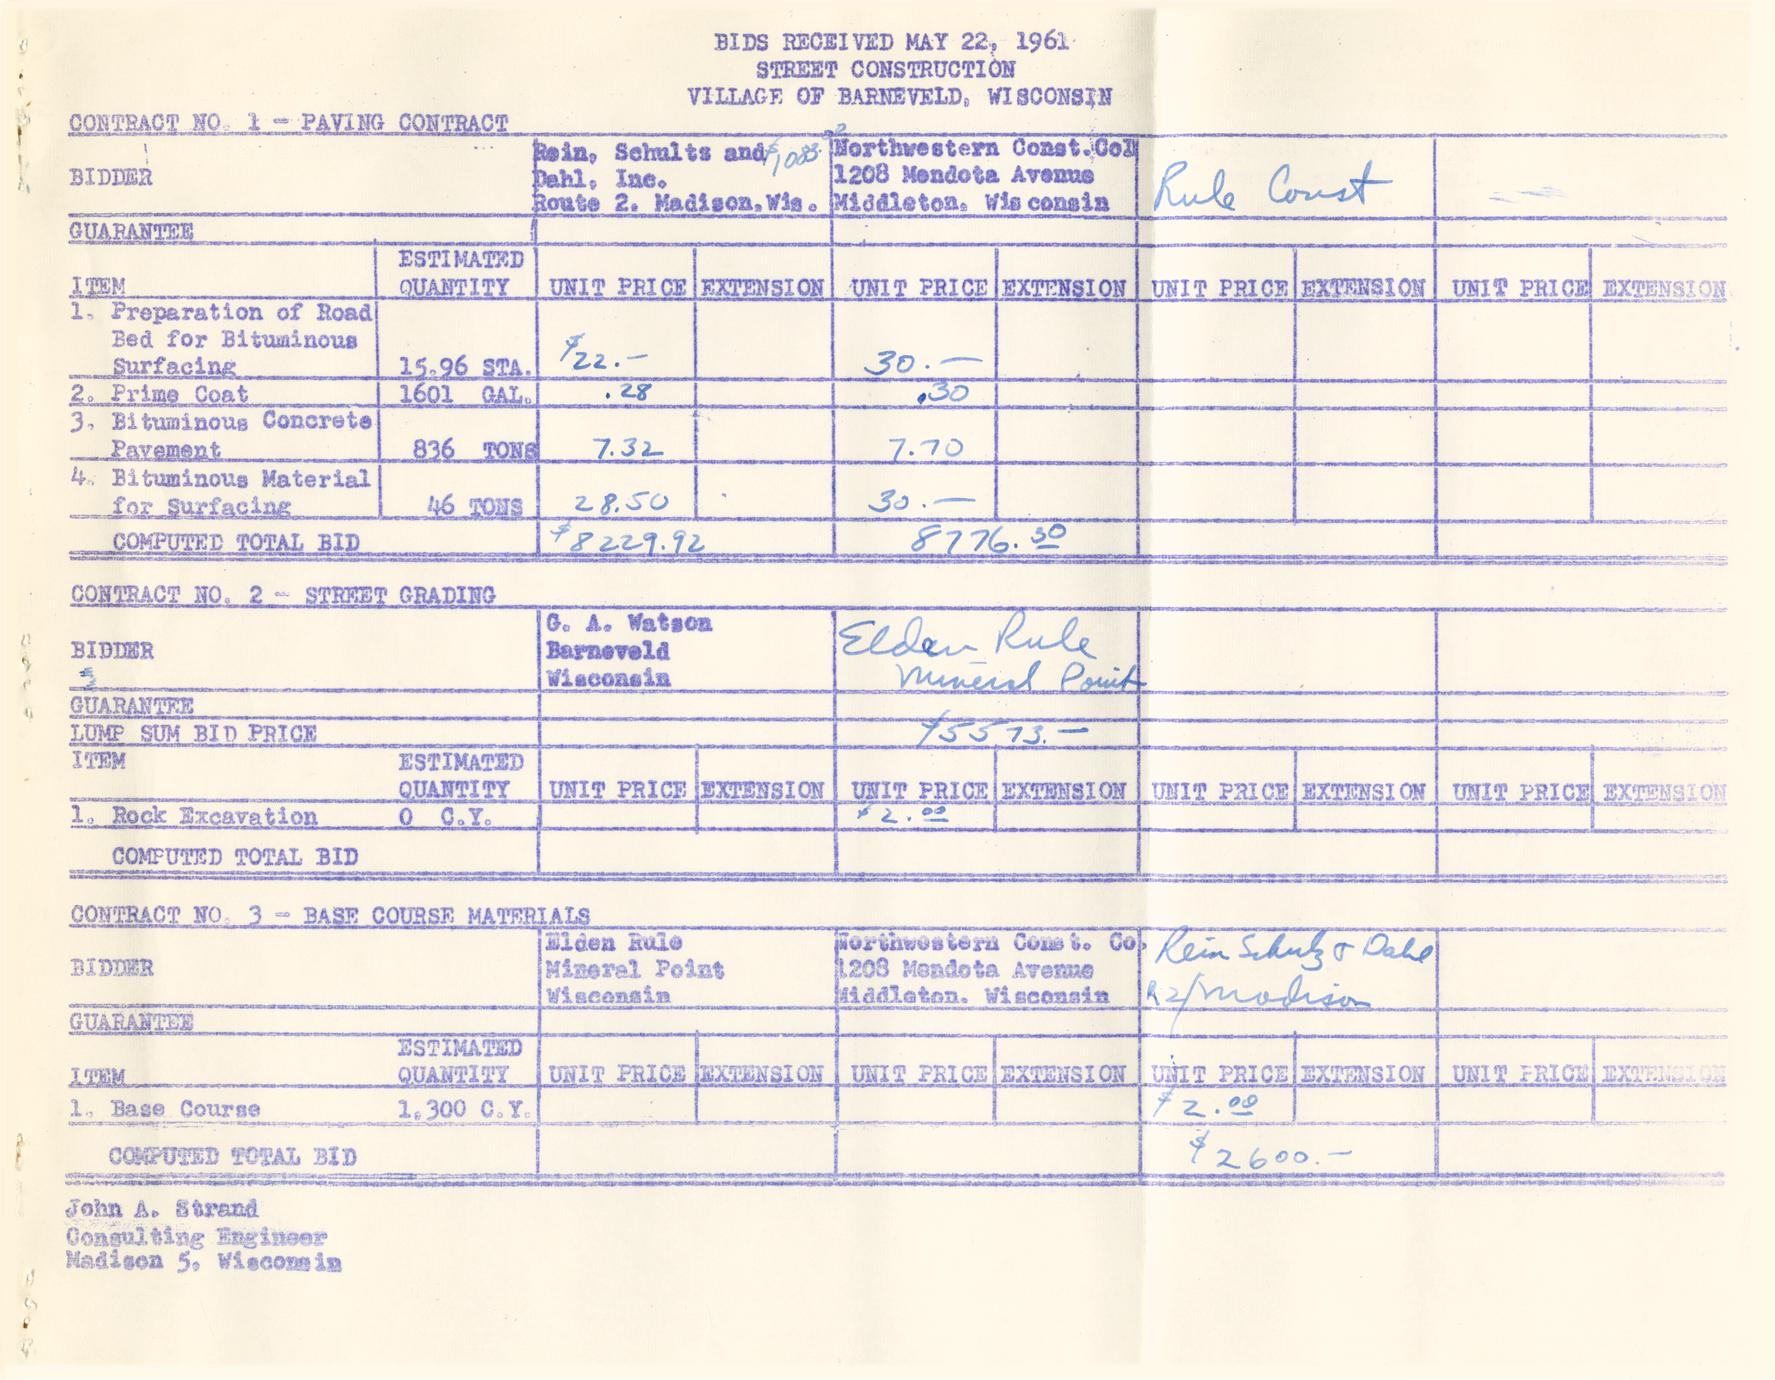 BIDS RECEIVED MAY 22, 1961
STREET CONSTRUCTION
VILLAGE OF BARNEVELD, WISCONSIN
CONTRACT NO. 1 - PAVING CONTRACT
BIDDER
Rein, Schults and
Dahl, Inc.
Route 2. Madison,Wis.
Northwestern Const.Col
1208 Mendota Avenue
Middleton, Wisconsin
Rule Const
GUARANTEE
ITEM ESTIMATED QUANTITY UNIT PRICE EXTENSION UNIT PRICE EXTENSION UNIT PRICE EXTENSION UNIT PRICE EXTENSION
1. Preparation of Road
Bed for Bituminous
Surfacing 15.96 STA. $22.- 30.-
2. Prime Coat 1601 GAL. .28 .30
3. Bituminous Concrete
Pavement 836 TONS 7.32 7.70
4. Bituminous Material
for Surfacing 46 TONS 28.50 30.-
COMPUTED TOTAL BID $8229.92 8776.30
CONTRACT NO. 2 - STREET GRADING
BIDDER
G. A. Watson
Barneveld
Wisconsin
Elden Rule
Mineral Point
GUARANTEE
LUMP SUM BID PRICE $5573.-
ITEM ESTIMATED QUANTITY UNIT PRICE EXTENSION UNIT PRICE EXTENSION UNIT PRICE EXTENSION UNIT PRICE EXTENSION
1. Rock Excavation 0 C.Y. $2.00
COMPUTED TOTAL BID
CONTRACT NO. 3 - BASE COURSE MATERIALS
BIDDER
Elden Rule
Mineral Point
Wisconsin
Northwestern Const. Co.
1208 Mendota Avenue
Middleton. Wisconsin
Rein Schulz & Dahl
R2/Madison
GUARANTEE
ITEM ESTIMATED QUANTITY UNIT PRICE EXTENSION UNIT PRICE EXTENSION UNIT PRICE EXTENSION UNIT PRICE EXTENSION
1. Base Course 1,300 C.Y. $2.00
COMPUTED TOTAL BID $2600.-
John A. Strand
Consulting Engineer
Madison 5, Wisconsin